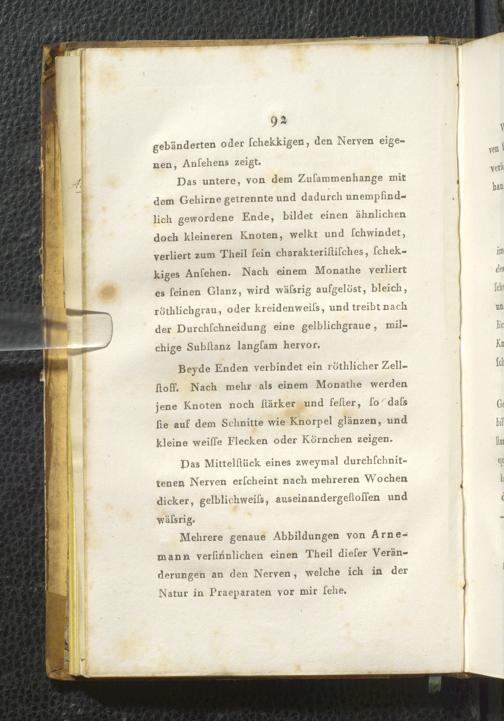 92
gebänderten oder ſchekkigen, den Nerven eige-
nen, Anſehens zeigt.
Das untere, von dem Zuſammenhange mit
dem Gehirne getrennte und dadurch unempfind-
lich gewordene Ende, bildet einen ähnlichen
doch kleineren Knoten, welkt und ſchwindet,
verliert zum Theil ſein charakteriſtiſches, ſchek-
kiges Anſehen. Nach einem Monathe verliert
es ſeinen Glanz, wird wäſsrig aufgelöst, bleich,
röthlichgrau, oder kreidenweiſs, und treibt nach
der Durchſchneidung eine gelblichgraue, mil-
chige Subſtanz langſam hervor.
Beyde Enden verbindet ein röthlicher Zell-
ſtoff. Nach mehr als einem Monathe werden
jene Knoten noch ſtärker und feſter, ſo daſs
ſie auf dem Schnitte wie Knorpel glänzen, und
kleine weiſſe Flecken oder Körnchen zeigen.
Das Mittelſtück eines zweymal durchſchnit-
tenen Nerven erſcheint nach mehreren Wochen
dicker, gelblichweiſs, auseinandergefloſſen und
wäſsrig.
Mehrere genaue Abbildungen von Arne-
mann verſinnlichen einen Theil dieſer Verän-
derungen an den Nerven, welche ich in der
Natur in Praeparaten vor mir ſehe.